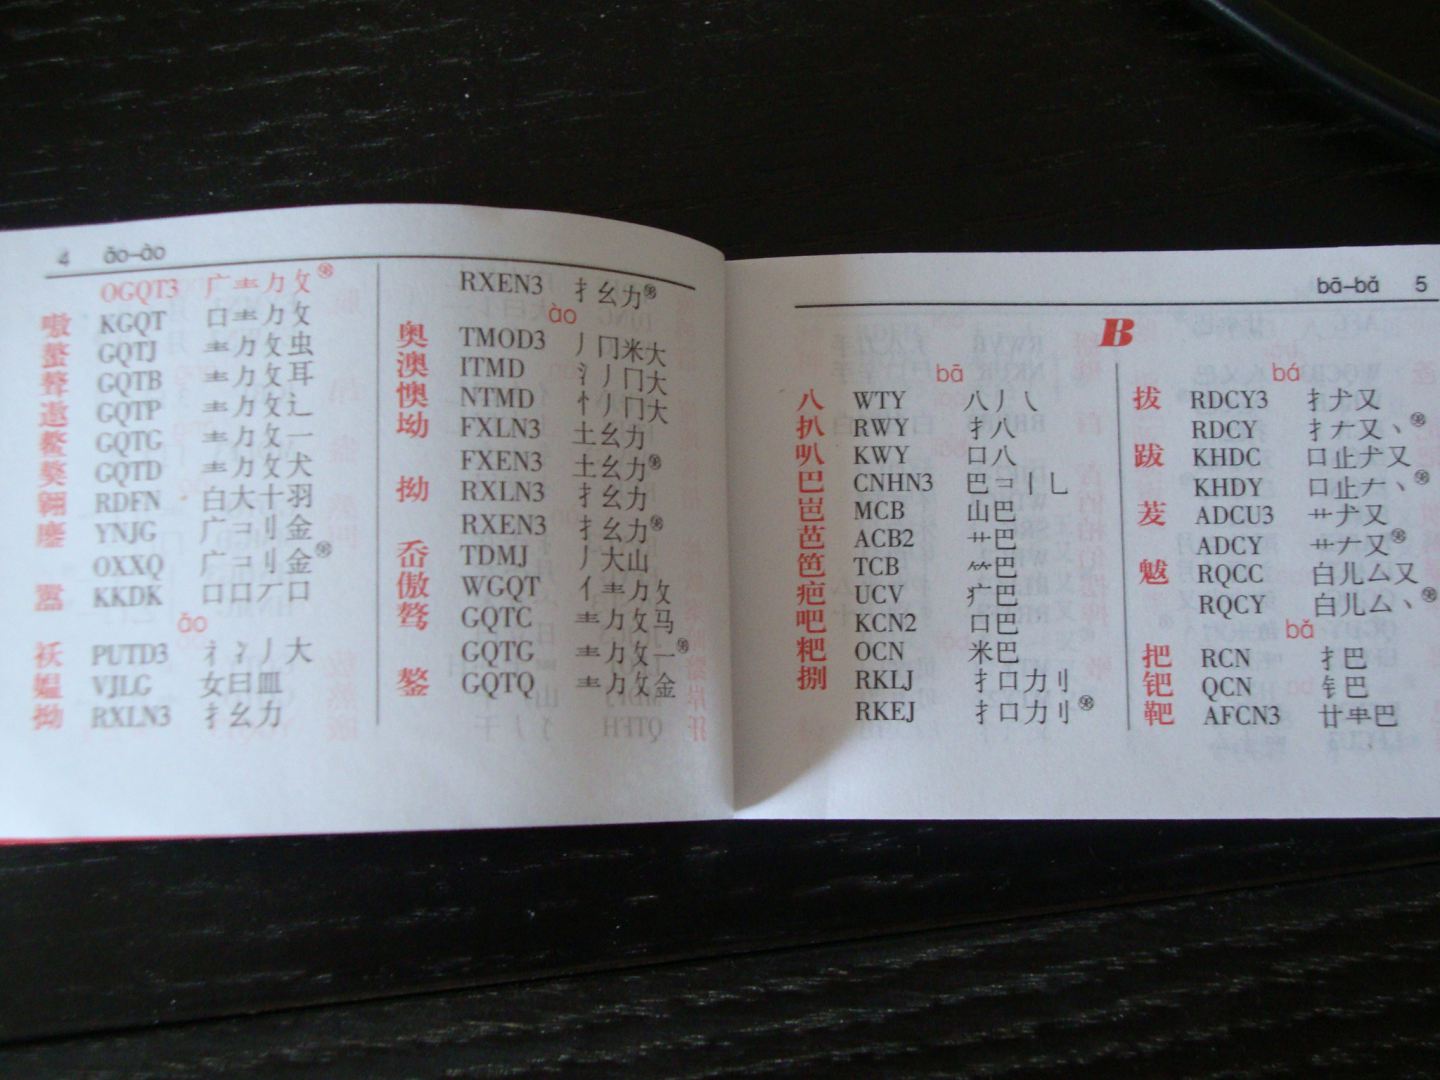 4 ǎo–ào
OGQT3 广龶力攵㊈
嗷 KGQT 口龶力攵
螯 GQTJ 龶力攵虫
聱 GQTB 龶力攵耳
遨 GQTP 龶力攵辶
鳌 GQTG 龶力攵一
獒 GQTD 龶力攵犬
翱 RDFN 白大十羽
鏖 YNJG 广コ刂金
OXXQ 广コ刂金
嚣 KKDK 口口丆口
ǎo
袄 PUTD3 礻冫丿大
媪 VJLG 女日皿
拗 RXLN3 扌幺力
RXEN3 扌幺力
ào
奥 TMOD3 丿冂米大
澳 ITMD 氵丿冂大
懊 NTMD 忄丿冂大
坳 FXLN3 土幺力
FXEN3 土幺力
拗 RXLN3 扌幺力
RXEN3 扌幺力
岙 TDMJ 丿大山
傲 WGQT 亻龶力攵
骜 GQTC 龶力攵马
GQTG 龶力攵一
鏊 GQTQ 龶力攵金
bā–bǎ 5
B
bā
八 WTY 八丿乀
扒 RWY 扌八
叭 KWY 口八
巴 CNHN3 巴コ丨乚
岜 MCB 山巴
芭 ACB2 艹巴
笆 TCB 𥫗巴
疤 UCV 疒巴
吧 KCN2 口巴
粑 OCN 米巴
捌 RKLJ 扌口力刂
RKEJ 扌口力刂
bá
拔 RDCY3 扌犮又
RDCY 扌𠂇又丶
跋 KHDC 口止𠂇又
KHDY 口止𠂇丶
茇 ADCU3 艹𠂇又
ADCY 艹𠂇又
魃 RQCC 白儿厶又
RQCY 白儿厶丶
bǎ
把 RCN 扌巴
钯 QCN 钅巴
靶 AFCN3 廿𠦒巴